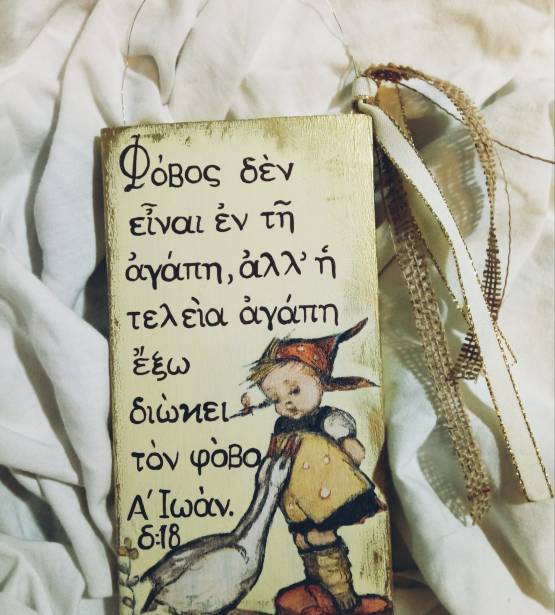 Φόβος δὲν
εἶναι ἐν τῇ
ἀγάπη, ἀλλ' ἡ
τελεὶα ἀγάπη
ἔξω
διώκει
τὸν φὸβο
Α΄ Ἰωὰν.
δ:18